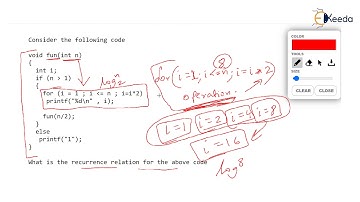 Ekeeda
Consider the following code
COLOR
void fun(int n)
{
int i;
if (n > 1)
{
for (i = 1 ; i <= n ; i=i*2)
printf("%d\n" , i);
fun(n/2);
}
else
printf("1");
}
What is the recurrence relation for the above code
TOOLS
SIZE
CLEAR
CLOSE
log₂n
for (i=1; i<=n; i=i*2)
8
operation
i=1 i=2 i=4 i=8
i=16
log8